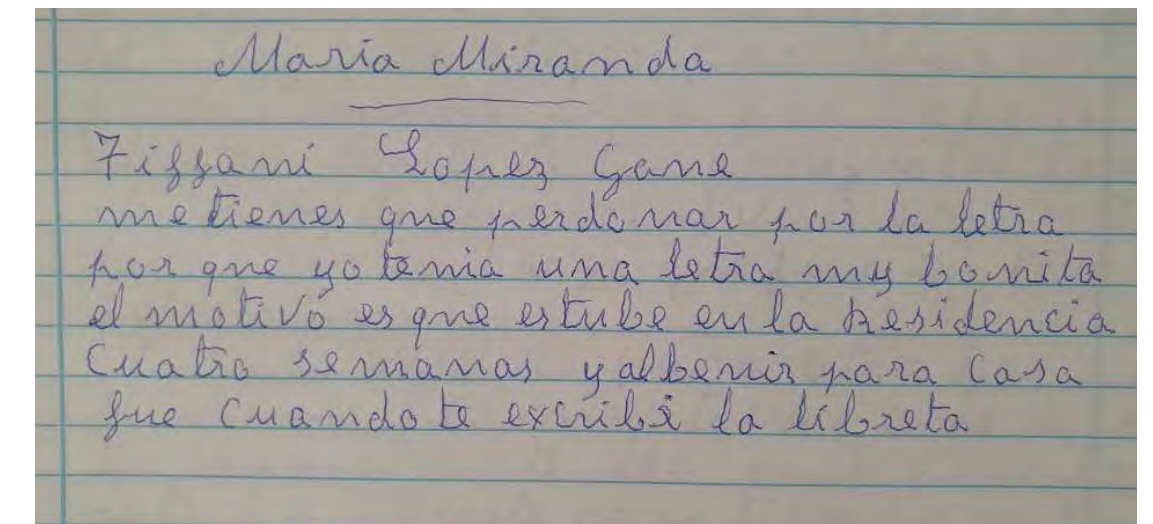 Maria Miranda
Tiffani Lopez Game
me tienes que perdonar por la letra
por que yo tenia una letra my bonita
el motivó es que estube en la Residencia
Cuatro semanas y al benir para Casa
fue Cuando te excribi la libreta